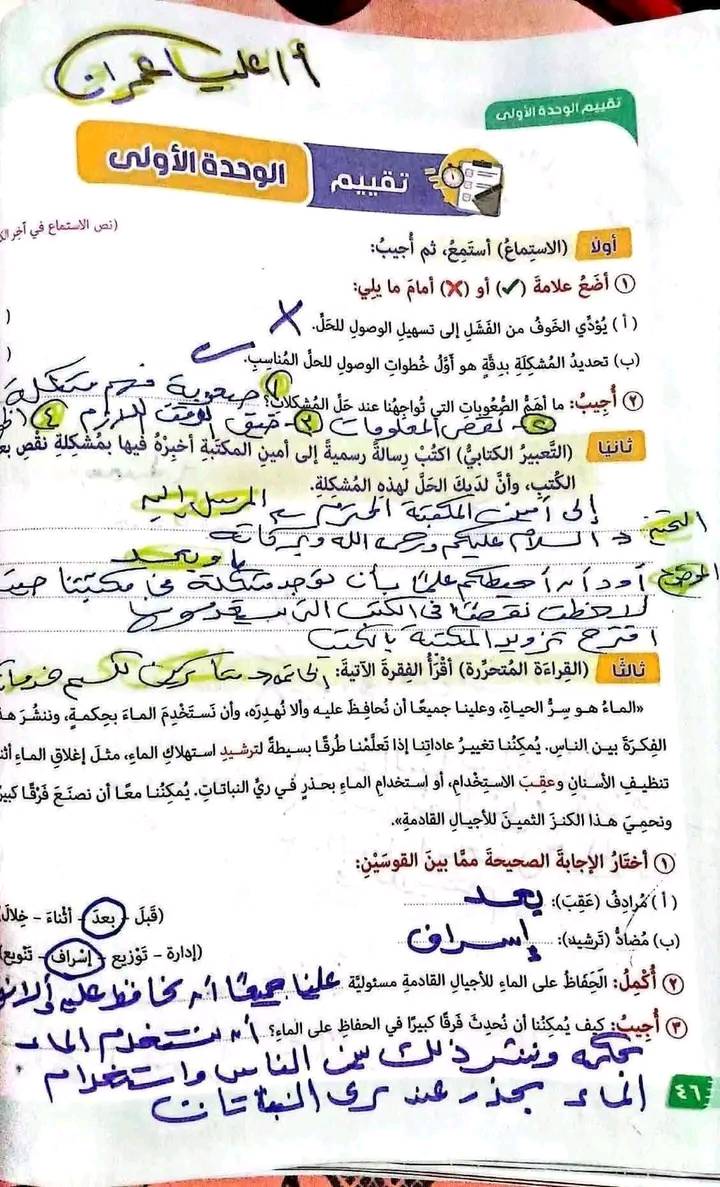 أ / علياء عمران
تقييم الوحدة الأولى
تقييم الوحدة الأولى
(نص الاستماع في آخر
أولًا (الاستِماعُ) أستَمِعُ، ثم أُجيبُ:
١ أضَعُ علامةَ (✓) أو (✗) أمامَ ما يلِي:
(أ) يُؤدِّي الخَوفُ من الفَشَلِ إلى تسهيلِ الوصولِ للحَلِّ. ✗ (
(ب) تحديدُ المُشكِلَةِ بدِقَّةٍ هو أوَّلُ خُطواتِ الوصولِ للحلِّ المُناسِبِ. ✓ (
٢ أُجيبُ: ما أهَمُّ الصُّعوباتِ التي تُواجِهُنا عند حَلِّ المُشكلاتِ؟ ١ صعوبة فهم مشكلة
٢ - نقص المعلومات ٣ - ضيق الوقت اللازم ٤
ثانيًا (التَّعبيرُ الكتابيُّ) اكتُبْ رِسالةً رسميةً إلى أمينِ المكتبَةِ أخبِرْهُ فيها بمُشكِلةِ نقْصِ بع
الكُتبِ، وأنَّ لدَيكَ الحَلَّ لهذه المُشكِلةِ.
إلى أمين المكتبة المحترم المرسل إليه
التحية السلام عليكم ورحمة الله وبركاته
وبعد
أود أن أحيطكم علمًا بأن توجد مشكلة في مكتبتنا حيث
لاحظت نقصًا في الكتب
اقترح تزويد المكتبة بالكتب
ثالثًا (القِراءَة المُتحرِّرة) أقْرَأُ الفِقرةَ الآتيةَ: الخاتمة شاكرين لكم
«الماءُ هو سِرُّ الحياةِ، وعلينا جميعًا أن نُحافِظَ عليه وألا نُهدِرَه، وأن نَستَخْدِمَ الماءَ بحِكمةٍ، وننشُرَ هذ
الفِكرَةَ بين الناسِ. يُمكِنُنا تغييرُ عاداتِنا إذا تعَلَّمْنا طُرقًا بسيطةً لترشيدِ استهلاكِ الماءِ، مثلَ إغلاقِ الماءِ أثن
تنظيفِ الأسنانِ وعقِبَ الاستِخْدامِ، أو استخدامِ الماءِ بحذرٍ في ريِّ النباتاتِ. يُمكِنُنا معًا أن نصنَعَ فَرْقًا كبير
ونحمِيَ هذا الكنزَ الثمينَ للأجيالِ القادمةِ».
١ أختَارُ الإجابةَ الصحيحةَ ممَّا بينَ القوسَيْنِ:
(أ) مُرادِفُ (عَقِبَ): بعد (قَبلَ - بعدَ - أثناءَ - خِلالَ
(ب) مُضادُّ (تَرشيد): إسراف (إدارة - تَوْزيع - إسْراف - تَنْويع)
٢ أُكْمِلُ: الحِفَاظُ على الماءِ للأجيالِ القادمةِ مسئوليَّة علينا جميعًا أن نحافظ عليه وألا
٣ أُجيبُ: كيف يُمكِنُنا أن نُحدِثَ فَرقًا كبيرًا في الحفاظِ على الماءِ؟ أن نستخدم الماء
بحكمه وننشر ذلك بين الناس واستخدام
الماء بحذر عند ري النباتات
٤٦